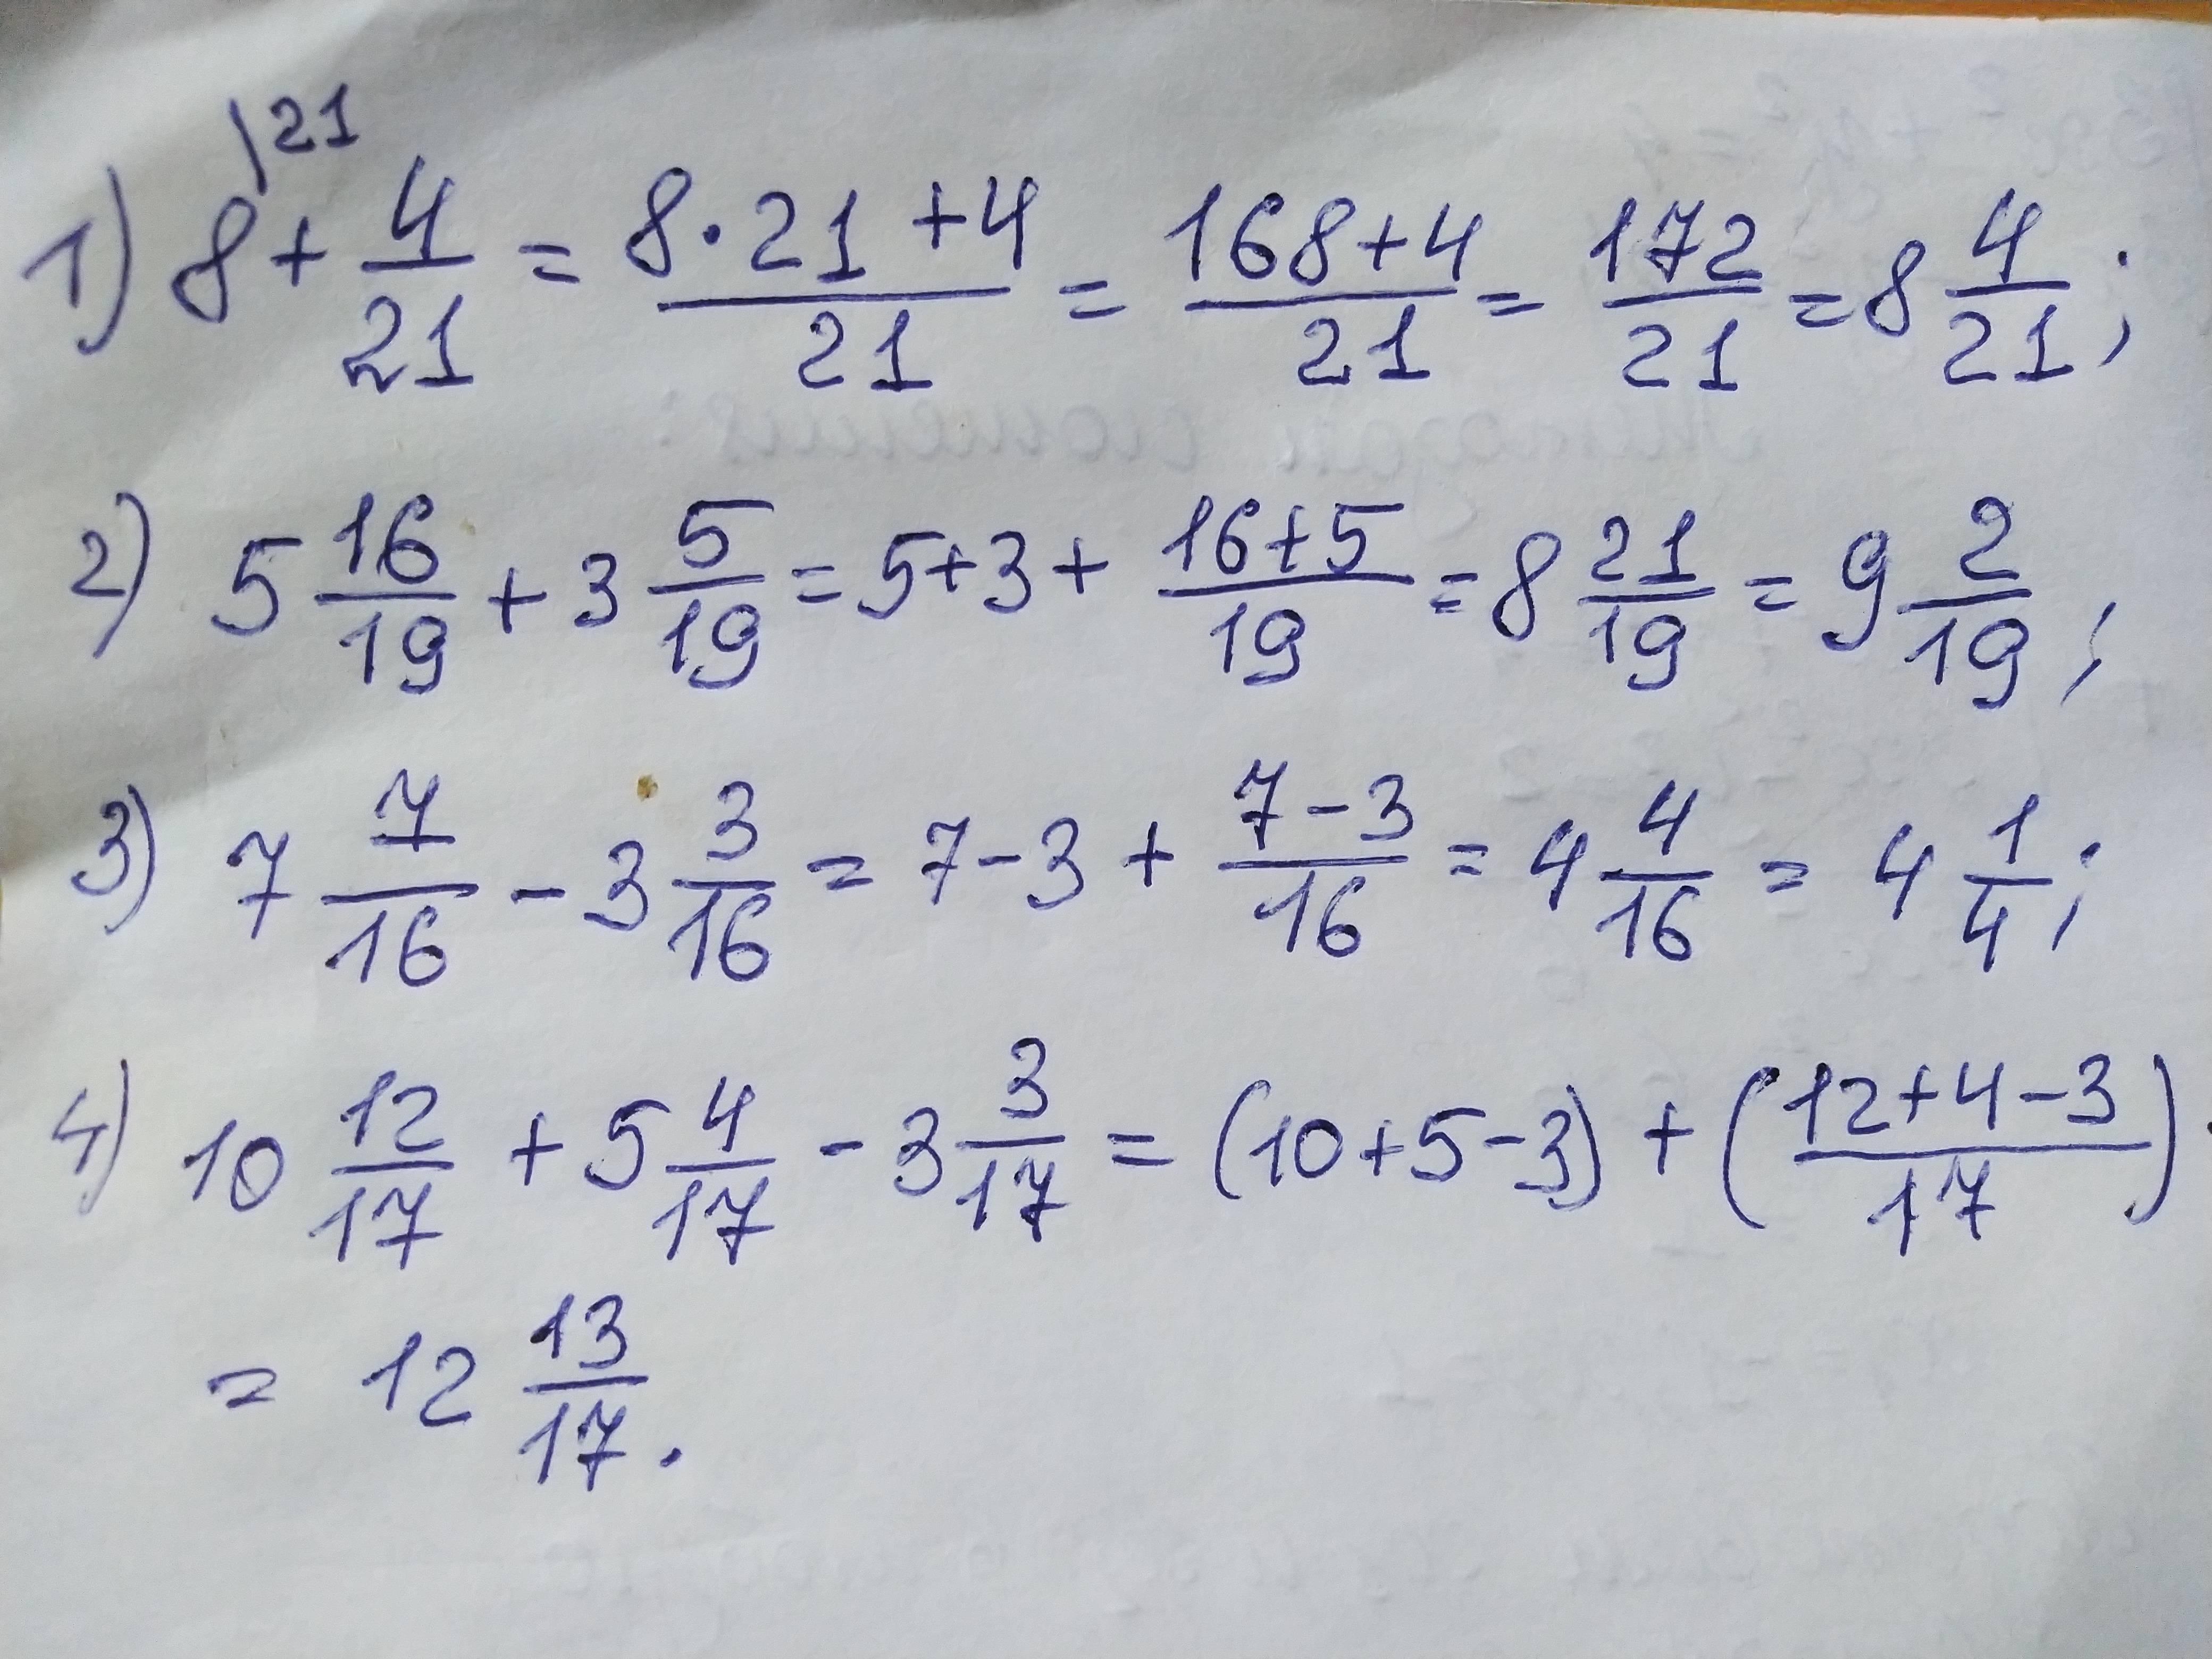 1) 8\21 + 4/21 = (8·21+4)/21 = (168+4)/21 = 172/21 = 8 4/21;
2) 5 16/19 + 3 5/19 = 5+3+ (16+5)/19 = 8 21/19 = 9 2/19;
3) 7 7/16 - 3 3/16 = 7-3 + (7-3)/16 = 4 4/16 = 4 1/4;
4) 10 12/17 + 5 4/17 - 3 3/17 = (10+5-3) + ((12+4-3)/17)
= 12 13/17.